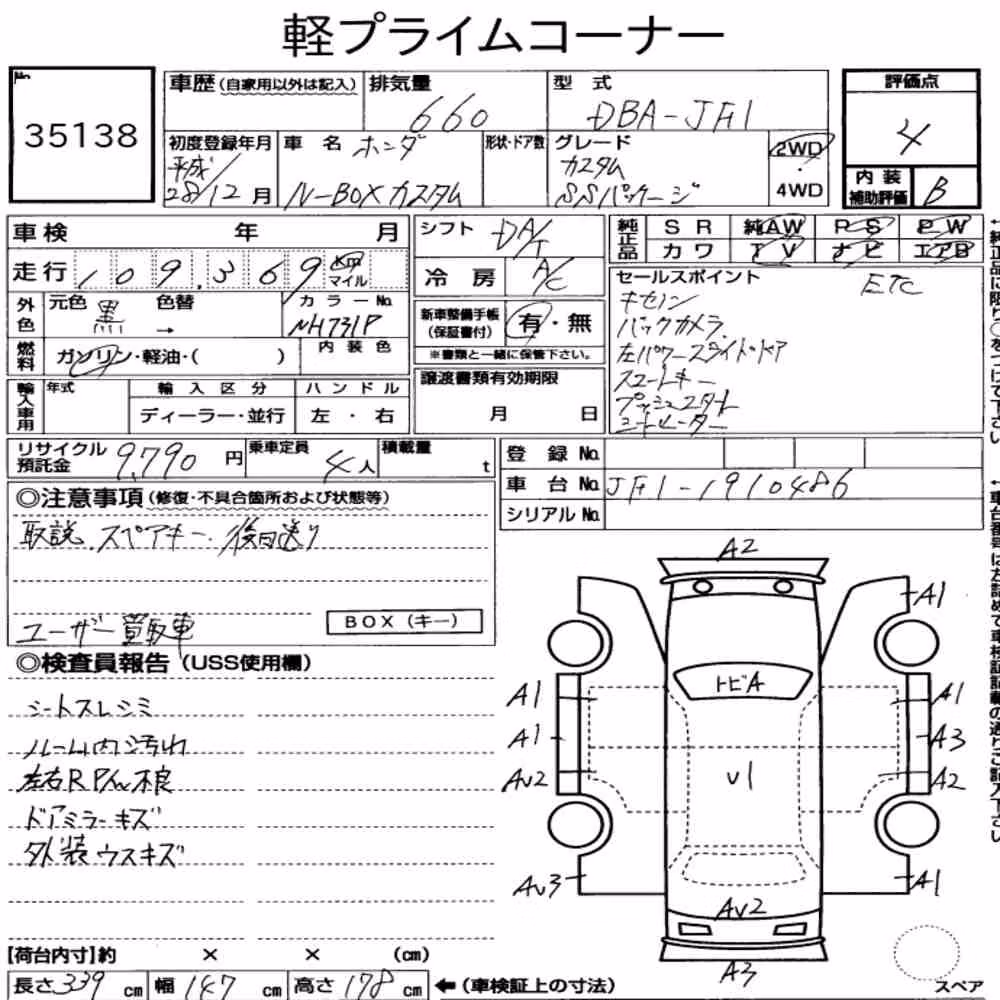 軽プライムコーナー
No.
35138
車歴(自家用以外は記入)
排気量
660
型式
DBA-JF1
評価点
4
初度登録年月
平成
28/12月
車名 ホンダ
N-BOXカスタム
形状・ドア数
グレード
カスタム
SSパッケージ
2WD
・
4WD
内装
補助評価
B
車検 年 月
シフト DA/T
純正品
SR 純AW PS PW
カワ TV ナビ エアB
走行 109,369 km
マイル
冷房 A/C
外色
元色 黒 色替 →
カラーNo.
NH731P
新車整備手帳
(保証書付)
有・無
※書類と一緒に保管下さい。
燃料
ガソリン・軽油・( )
内装色
輸入車用
年式
輸入区分
ディーラー・並行
ハンドル
左・右
譲渡書類有効期限
月 日
セールスポイント
ETC
キセノン
バックカメラ
左パワースライドドア
スマートキー
プッシュスタート
リサイクル
預託金
9,790円
乗車定員
4人
積載量
t
登録No.
車台No. JF1-1910486
シリアルNo.
◎注意事項(修復・不具合箇所および状態等)
取説、スペアキー、後日送り
ユーザー買取車
BOX(キー)
◎検査員報告(USS使用欄)
シートスレシミ
ルーム内汚れ
左右RPハル不良
ドアミラーキズ
外装ウスキズ
A2
A1
トビA
A1
A1
A1
A3
U1
AU2
A2
AU3
A1
AU2
A3
スペア
[荷台内寸]約 × × (cm)
長さ339cm 幅147cm 高さ178cm ←(車検証上の寸法)
←純正品に限り○をつけて下さい
←車台番号は左詰めで車検証記載の通りご記入下さい